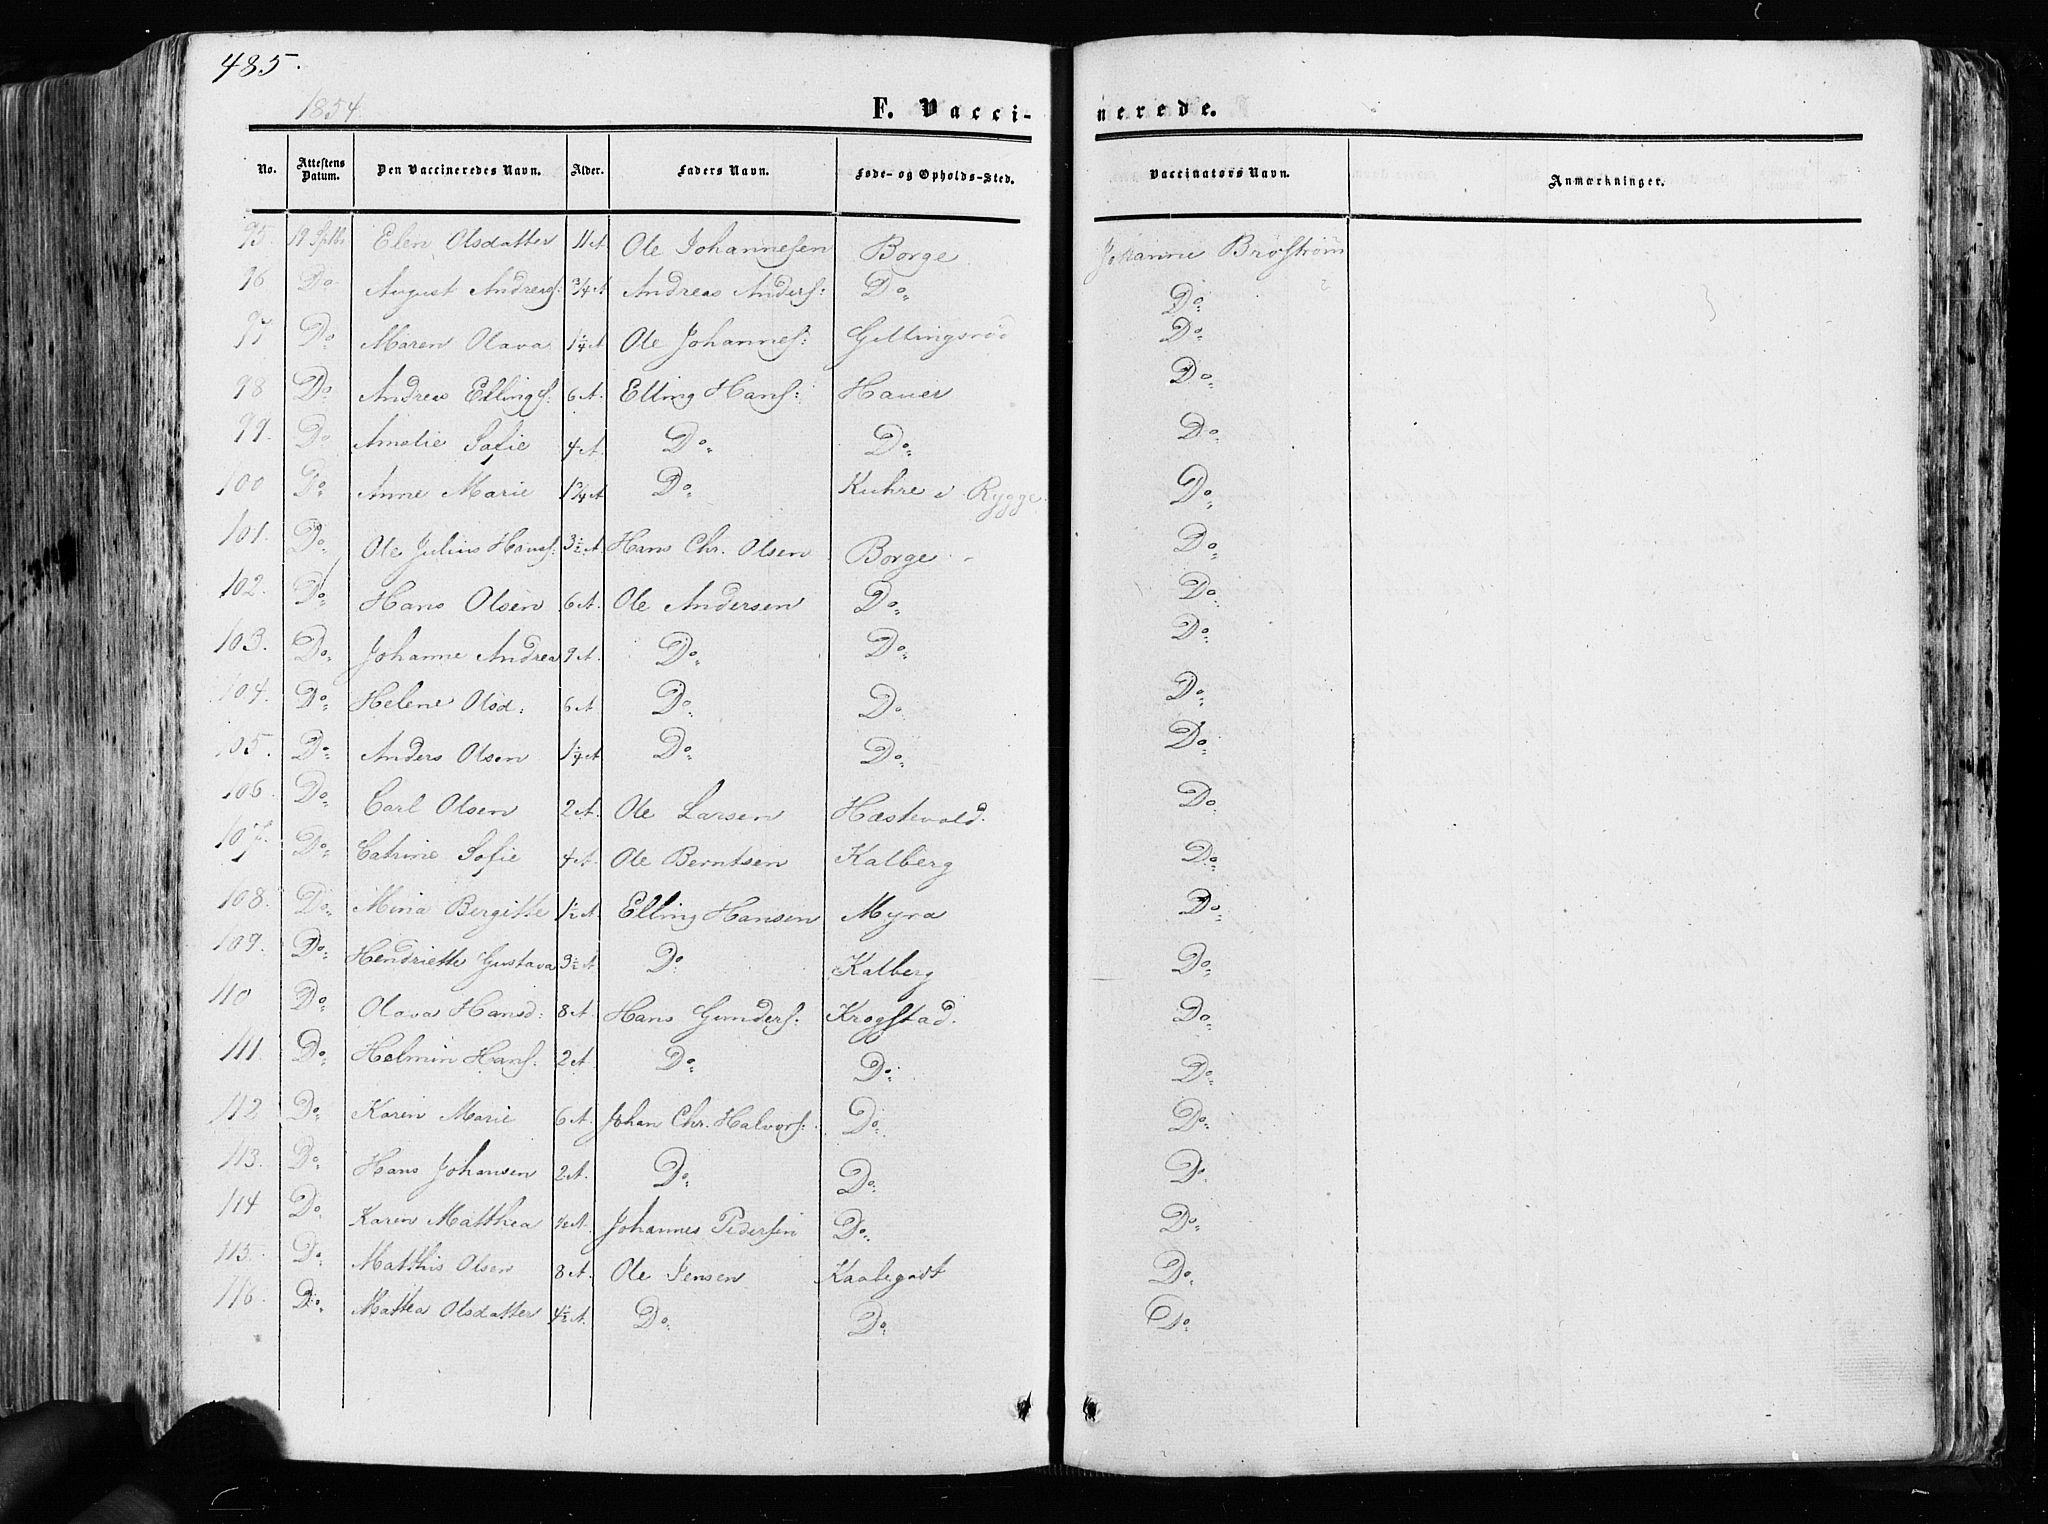 485.
1854
F. Vacci-
nerede.
No. Attestens Datum. Den Vaccineredes Navn. Alder. Faders Navn. Føde- og Opholds-Sted. Vaccinators Navn. Anmærkninger.
95. 19 Sptbr Elen Olsdatter 11 A Ole Johannesen Borge Johanne Brostrøm
96 Do August Andreas: 3/4 A Andreas Anders: Do Do
97 Do Maren Olava 1 1/4 A Ole Johannes: Gillingsrød Do
98 Do Andreas Ellings: 6 A. Elling Hans: Hauer Do
99. Do Amelie Sofie 4 A. Do Do Do
100 Do Anne Marie 1 3/4 A Do Kuhre i Rygge Do
101. Do Ole Julius Hans: 3 1/2 A Hans Chr. Olsen Borge Do
102. Do Hans Olsen 6 A. Ole Andersen Do Do
103. Do Johanne Andrea 9 A. Do Do Do
104. Do Helene Olsd: 6 A. Do Do Do
105. Do Anders Olsen 1 1/4 A Do Do Do
106. Do Carl Olsen 2 A. Ole Larsen Hæstevold. Do
107. Do Catrine Sofie 4 A. Ole Berntsen Kalberg Do
108. Do Mina Bergitte 1 1/2 A. Elling Hansen Myra Do
109. Do Hendriette Gustava 3 1/2 A Do Kalberg Do
110 Do Olava Hansd: 8 A. Hans Gunders: Krogstad. Do
111. Do Helmin Hans: 2 A. Do Do Do
112 Do Karen Marie 6 A. Johan Chr. Halvors: Do Do
113. Do Hans Johansen 2 A. Do Do Do
114 Do Karen Matthea 1/2 A. Johannes Pedersen Do Do
115. Do Matthis Olsen 8 A. Ole Jensen Kaalegadt Do
116. Do Mattea Olsdatter 4 1/2 A. Do Do Do